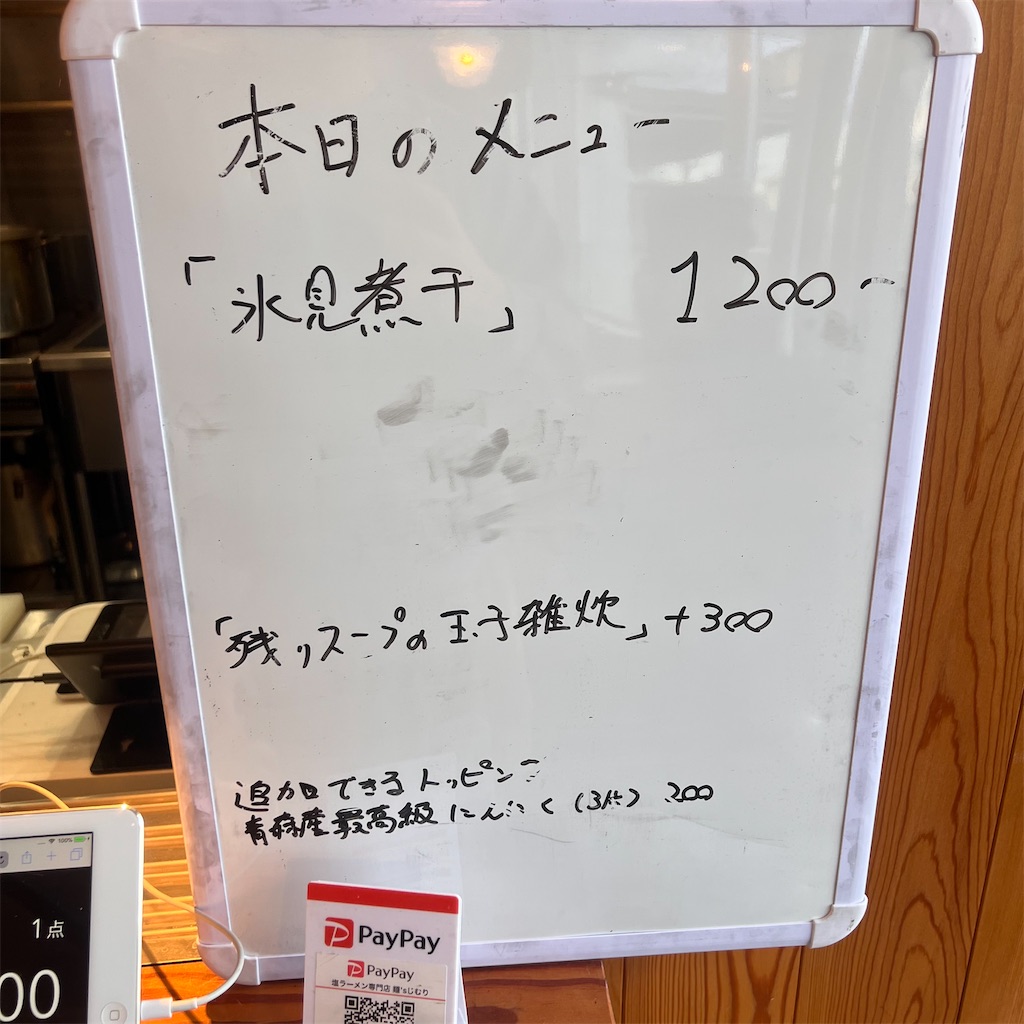 本日のメニュー
「氷見煮干」 1200-
「残りスープの玉子雑炊」+300
追加できるトッピング
青森産最高級にんにく(3片) 200
100%
1点
00
PayPay
PayPay
塩ラーメン専門店 麺'sじむり